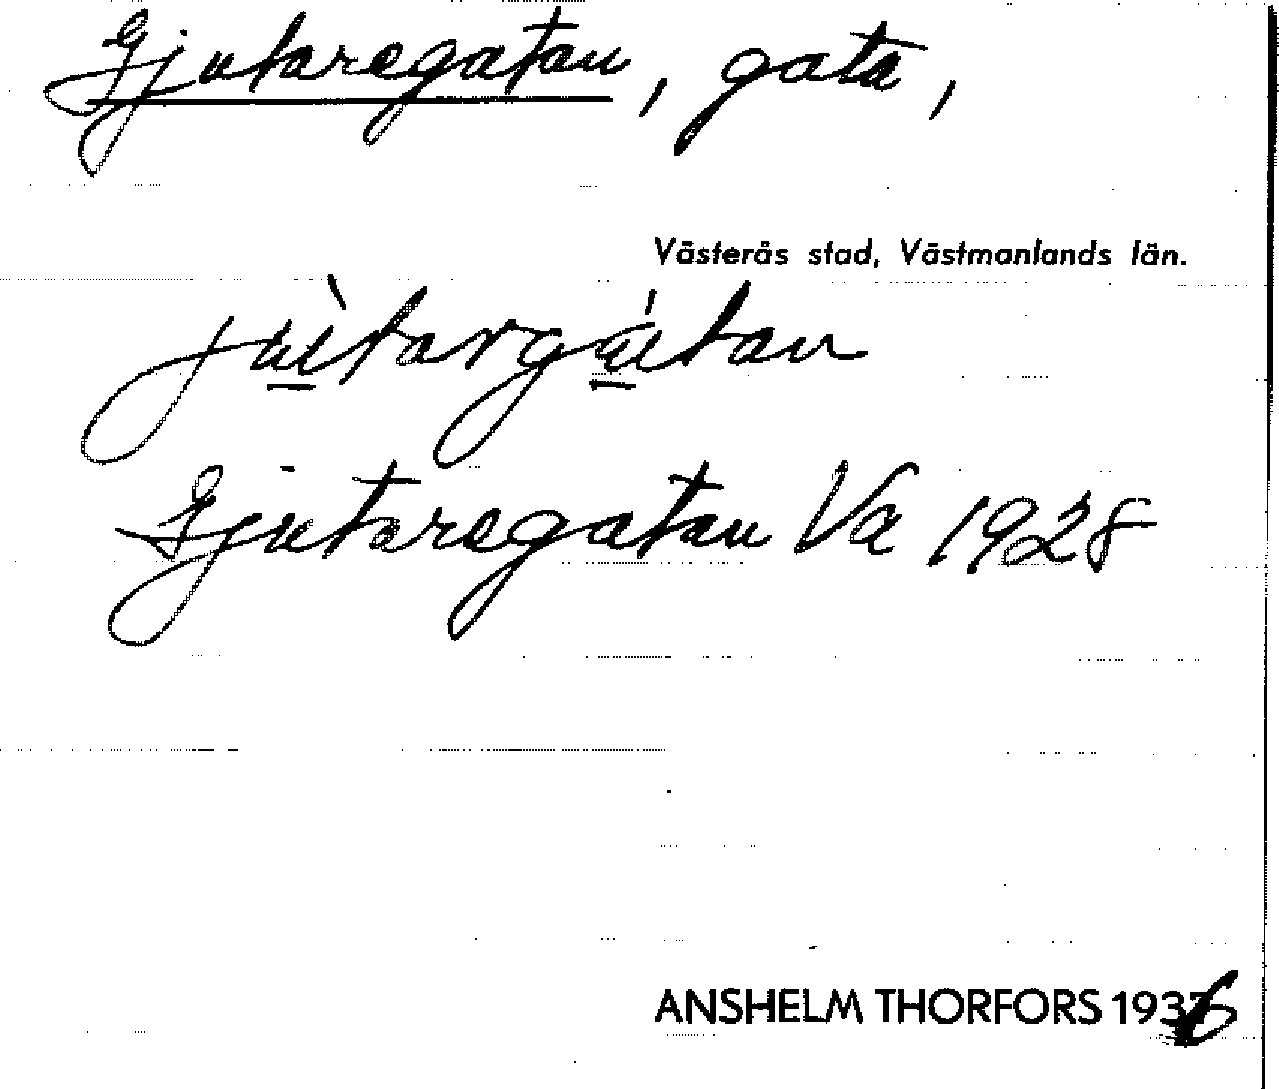 Gjutaregatan, gata,
Västerås stad, Västmanlands län.
jùtargátan
Gjutaregatan Va 1928
ANSHELM THORFORS 1936